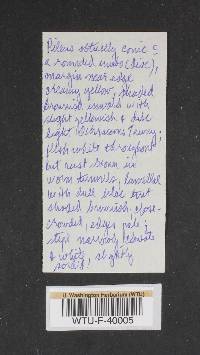 Pileus obtusely conic c
a rounded umbo (disc),
margin near edge
creamy yellow, shaded
brownish inwards with
slight yellowish & disc
light
flesh white throughout
but rust brown in
worm tunnels, lamellae
with dull lilac tint
shaded brownish, close-
crowded, edges pale;
stipe narrowly clavate
& white, slightly
U. Washington Herbarium (WTU)
WTU-F-40005